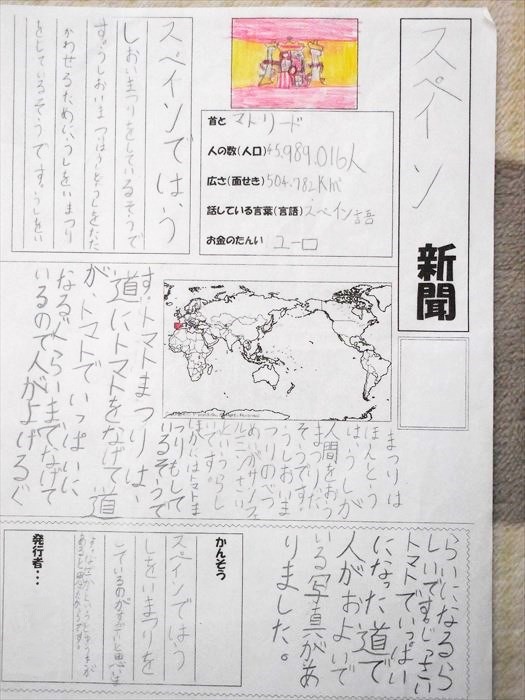 スペイン
新聞
首と マトリード
人の数(人口) 45.989.016人
広さ(面せき) 504.782K㎡
話している言葉(言語) スペイン語
お金のたんい ユーロ
スペインでは、う
しおいまつりをしているそうで
す。うしおいまつりは、うしとうしをたた
かわせるために、うしをいまつり
をしているそうです。うしをい
まつりは
ほんとう
は、うしが
人間をおう
まつりだ
そうです。
うしおいま
つりのべつ
めいがサンフェ
ルミンさい
というらし
いです。
ほかにはトマトま
つりもして
いるそうで
す。トマトまつりは、
道にトマトをなげて道
が、トマトでいっぱいに
なるくらいまでなげて
いるので人がよげるぐ
らいになるらし
しいです。じっさい
トマトでいっぱい
になった道で
人がおよいで
いる写真があ
りました。
かんそう
スペインではう
しをいまつりを
しているのがすごいと思いま
発行者・・・